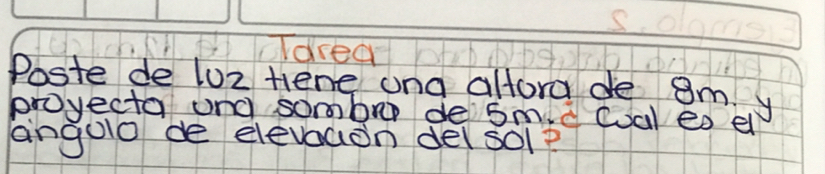 Tarea
Poste de luz tiene una altura de 8m. y
proyecta una sombra de 5m. ¿ Cual es el
angulo de elevación del sol?